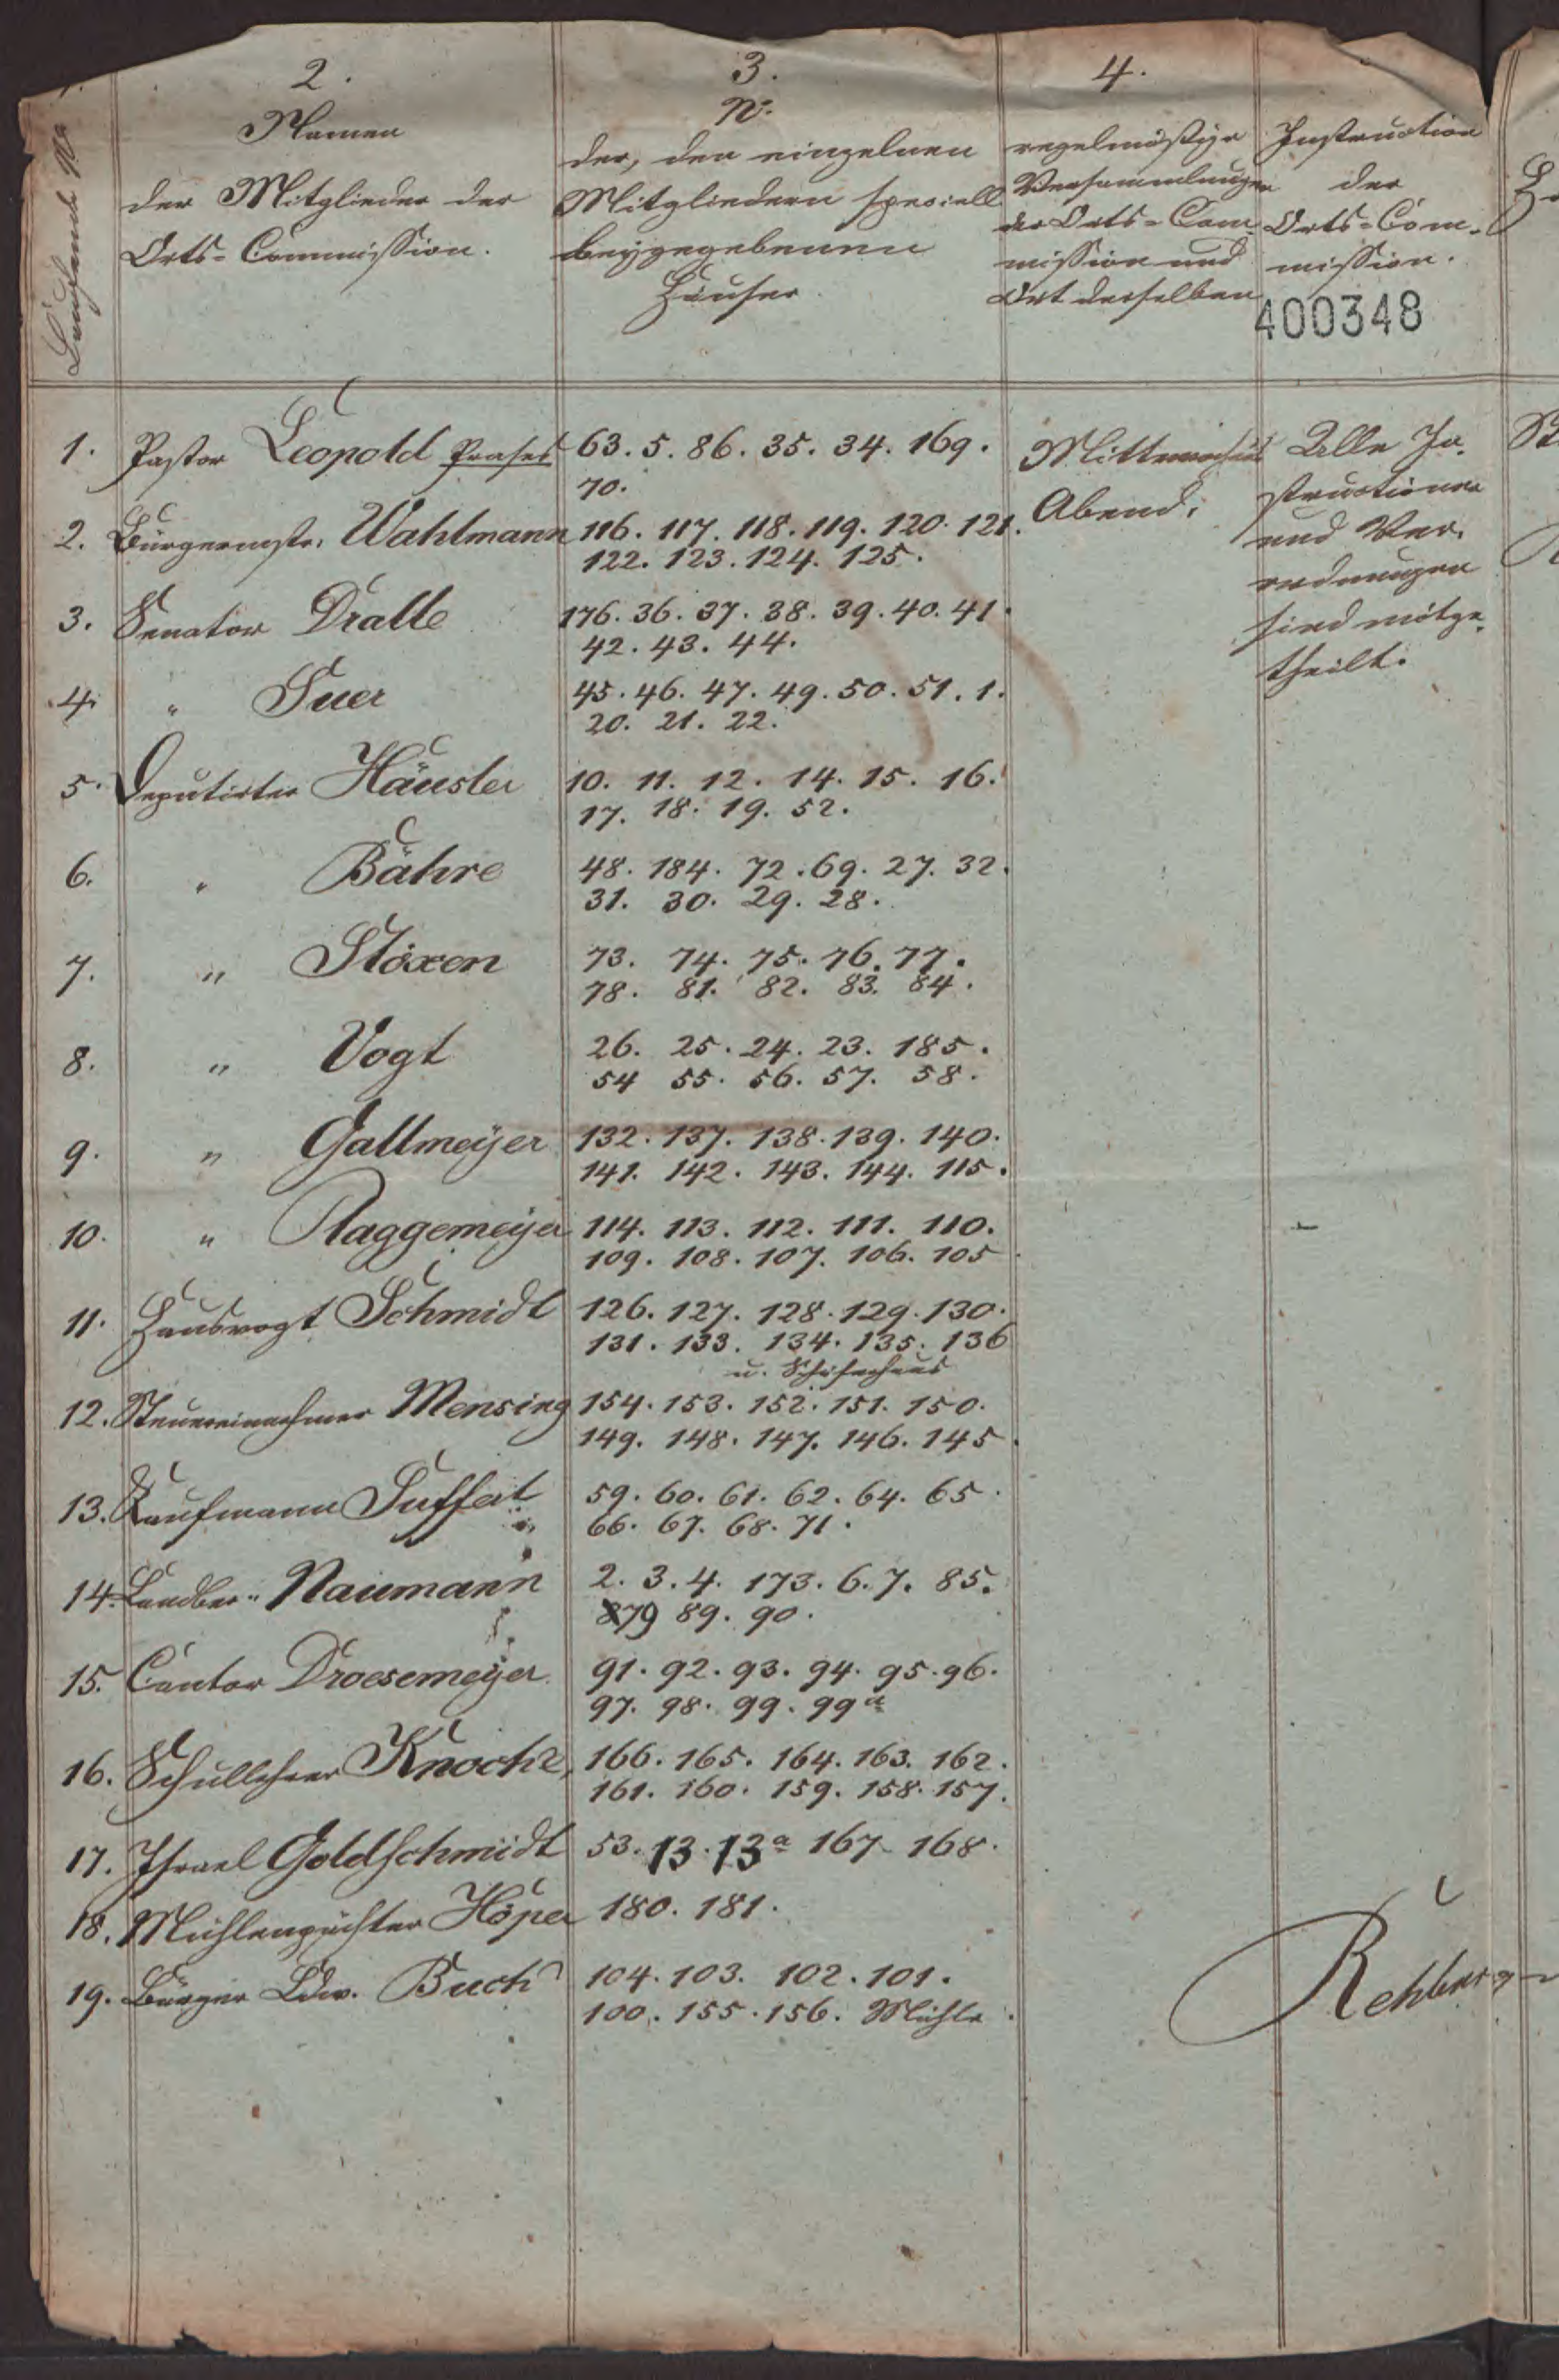 2.
3.
4.
Laufende No
Namen
der Mitglieder der
Orts=Commission.
No.
der, den einzelnen
Mitgliedern speciell
beygegebenen
Häuser.
regelmäßige
Versammlungen
der Orts=Com
mission und
Ort derselben
Instruction
der
Orts=Com=
mission.
400348
1. Pastor Leopold Praeses 63. 5. 86. 35. 34. 169.
70.
2. Bürgermstr. Wahlmann 116. 117. 118. 119. 120. 121.
122. 123. 124. 125.
3. Senator Dralle 176. 36. 37. 38. 39. 40. 41.
42. 43. 44.
4. " Suer 45. 46. 47. 49. 50. 51. 1.
20. 21. 22.
5. Deputirter Häusler 10. 11. 12. 14. 15. 16.
17. 18. 19. 52.
6. " Bähre 48. 184. 72. 69. 27. 32.
31. 30. 29. 28.
7. " Stöxen 73. 74. 75. 76. 77.
78. 81. 82. 83. 84.
8. " Vogt 26. 25. 24. 23. 185.
54 55. 56. 57. 58.
9. " Gallmeÿer 132. 137. 138. 139. 140.
141. 142. 143. 144. 115.
10. " Plaggemeÿer 114. 113. 112. 111. 110.
109. 108. 107. 106. 105
11. Hausvogt Schmidt 126. 127. 128. 129. 130.
131. 133. 134. 135. 136
u. Schäferhaus
12. Steuereinnehmer Mensing 154. 153. 152. 151. 150.
149. 148. 147. 146. 145.
13. Kaufmann Suffert 59. 60. 61. 62. 64. 65.
66. 67. 68. 71.
14. Naumann 2. 3. 4. 173. 6. 7. 85.
879 89. 90.
15. Cantor Droesemeÿer 91. 92. 93. 94. 95. 96.
97. 98. 99. 99a
16. Schullehrer Knoche, 166. 165. 164. 163. 162.
161. 160. 159. 158. 157.
17. Israel Goldschmidt 53. 13. 13a 167 168.
18. Mühlenpächter Höper 180. 181.
19. Bürger Ldw. Buch 104. 103. 102. 101.
100. 155. 156. Mühle.
Mittwochens
Abend.
Alle In=
structionen
und Ver=
ordnungen
sind mitge=
theilt.
Rehburg